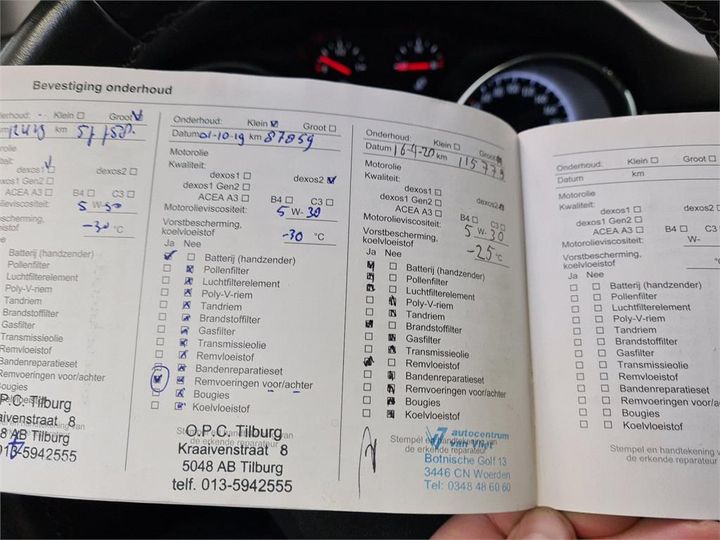 Bevestiging onderhoud
Klein Groot
km
dexos1 dexos2
dexos1 Gen2
ACEA A3 B4 C3
5 W-30
-30 °C
Batterij (handzender)
Pollenfilter
Luchtfilterelement
Poly-V-riem
Tandriem
Brandstoffilter
Gasfilter
Transmissieolie
Remvloeistof
Bandenreparatieset
Remvoeringen voor/achter
Bougies
Koelvloeistof
O.P.C. Tilburg
Kraaivenstraat 8
5048 AB Tilburg
013-5942555
Onderhoud: Klein Groot
Datum 01-10-19 km 87859
Motorolie
Kwaliteit:
dexos1 dexos2
dexos1 Gen2
ACEA A3 B4 C3
Motorolieviscositeit: 5 W-30
Vorstbescherming,
koelvloeistof -30 °C
Ja Nee
Batterij (handzender)
Pollenfilter
Luchtfilterelement
Poly-V-riem
Tandriem
Brandstoffilter
Gasfilter
Transmissieolie
Remvloeistof
Bandenreparatieset
Remvoeringen voor/achter
Bougies
Koelvloeistof
O.P.C. Tilburg
Kraaivenstraat 8
5048 AB Tilburg
telf. 013-5942555
Onderhoud: Klein Groot
Datum 16-4-20 km 115779
Motorolie
Kwaliteit:
dexos1 dexos2
dexos1 Gen2
ACEA A3 B4 C3
Motorolieviscositeit: 5 W-30
Vorstbescherming,
koelvloeistof -25 °C
Ja Nee
Batterij (handzender)
Pollenfilter
Luchtfilterelement
Poly-V-riem
Tandriem
Brandstoffilter
Gasfilter
Transmissieolie
Remvloeistof
Bandenreparatieset
Remvoeringen voor/achter
Bougies
Koelvloeistof
Stempel en handtekening van
de erkende reparateur
autocentrum
van Vliet
Botnische Golf 13
3446 CN Woerden
Tel: 0348 48 60 60
Onderhoud: Klein Groot
Datum km
Motorolie
Kwaliteit:
dexos1 dexos2
dexos1 Gen2
ACEA A3 B4 C3
Motorolieviscositeit: W-
Vorstbescherming,
koelvloeistof
Ja Nee
Batterij (handzender)
Pollenfilter
Luchtfilterelement
Poly-V-riem
Tandriem
Brandstoffilter
Gasfilter
Transmissieolie
Remvloeistof
Bandenreparatieset
Remvoeringen voor/achter
Bougies
Koelvloeistof
Stempel en handtekening
de erkende reparateur